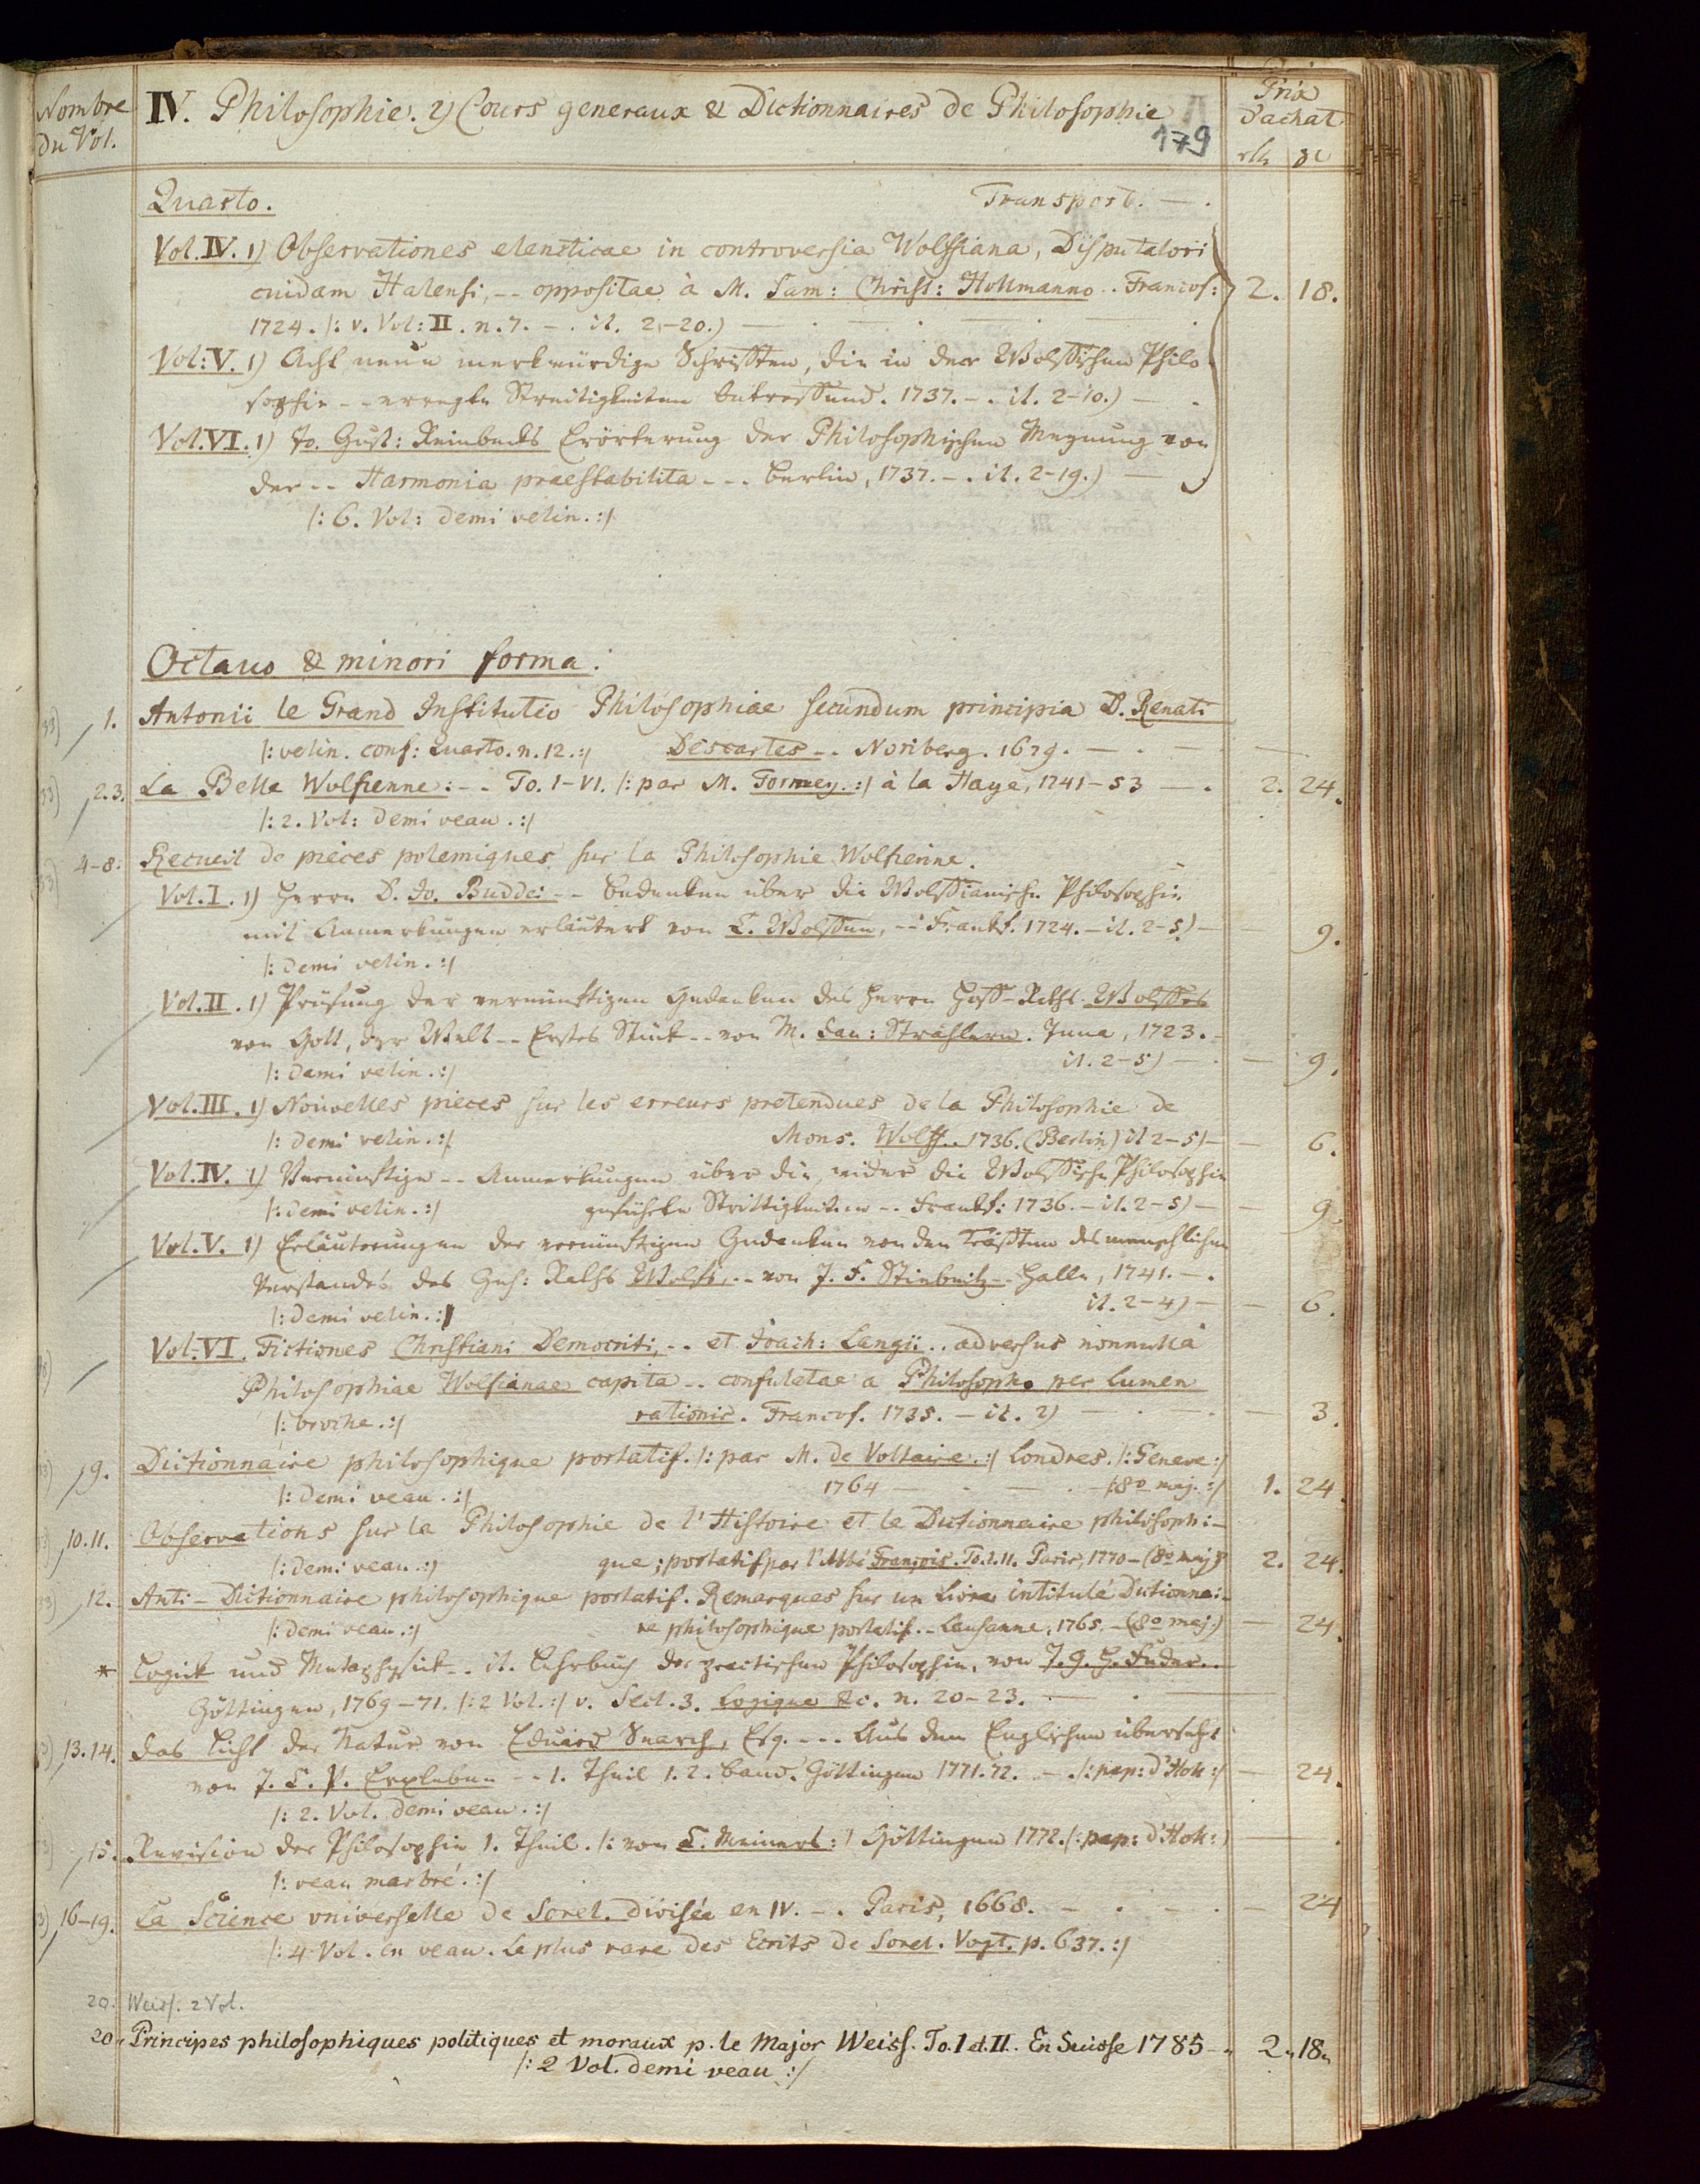 Nombre
du Vol.
IV. Philosophie. 2) Cours generaux & Dictionnaires de Philosophie
179
Prix
d'achat
Quarto. Transport. — .
Vol. IV. 1) Observationes elencticae in controversia Wolffiana, Disputatori
cuidam Halensi, -- oppositae à M. Sam: Christ: Hollmanno.. Francof: 2. 18.
1724. /: v. Vol: II. n. 7. - . it. 2-20.)
Vol: V. 1) Acht neue merkwürdige Schrifften, die in der Wolffischen Philo-
sophie -- erregte Streitigkeiten betreffend. 1737. - . it. 2-10.) — .
Vol. VI. 1) Jo. Gust: Reinbecks Erörterung der Philosophischen Meynung von
der -- Harmonia praestabilita --- Berlin, 1737. - . it. 2-19.) —
/: 6. Vol: demi velin. :/
Octavo & minori forma.
1. Antonii le Grand Institutio Philosophiae secundum principia D. Renati
/: velin. conf: Quarto. n. 12. :/ Descartes -. Noriberg. 1679. — . —
2.3. La Belle Wolfienne: -. To. I-VI. /: par M. Formey. :/ à la Haye, 1741-53 — . 2. 24.
/: 2. Vol: demi veau. :/
4-8. Recueil de pièces polemiques sur la Philosophie Wolfienne.
Vol. I. 1) Herrn D. Jo. Buddei -- Bedenken über die Wolffianische Philosophie
mit Anmerkungen erläutert von C. Wolffen, -- Frankf. 1724. - it. 2-5) — — 9.
/: demi velin. :/
Vol. II. 1) Prüfung der vernünftigen Gedanken des Herrn Hoff-Raths Wolffes
von Gott, der Welt -- Erstes Stück -- von M. Dan: Strählern. Jena, 1723. -
/: demi velin. :/ it. 2-5) — . — 9.
Vol. III. 1) Nouvelles pieces sur les erreurs pretendues de la Philosophie de
/: demi velin. :/ Mons. Wolff.. 1736. (Berlin) it 2-5) — — 6.
Vol. IV. 1) Vernünftige -- Anmerkungen über die, wider die Wolffische Philosophie
/: demi velin. :/ geführte Strittigkeiten -. Frankf: 1736. - it. 2-5) — — 9.
Vol. V. 1) Erläuterungen der vernünftigen Gedanken von den Kräfften des menschlichen
Verstandes des Geh: Raths Wolfs, -- von J. F. Stiebritz -. Halle, 1741. - .
/: demi velin. :/ it. 2-4) — — 6.
Vol: VI. Fictiones Christiani Democriti, -. et Joach: Langii .. adversus nonnulla
Philosophiae Wolfianae capita -. confutatae a Philosopho per lumen
/: broche. :/ rationis. Francof. 1735. - it. 2) — . — . — 3.
9. Dictionnaire philosophique portatif. /: par M. de Voltaire. :/ Londres. /: Geneve :/
/: demi veau. :/ 1764 — . — . /: 8o maj. :/ 1. 24.
10.11. Observations sur la Philosophie de l'Histoire et le Dictionnaire philosophi-
/: demi veau. :/ que; portatif par l'Abbé François. To. I. II. Paris, 1770 - (8o maj) 2. 24.
12. Anti-Dictionnaire philosophique portatif. Remarques sur un Livre intitulé Dictionnai-
/: demi veau. :/ re philosophique portatif. - Lausanne, 1765. - (8o maj.) — 24.
* Logick und Metaphysick -. it. Lehrbuch der practischen Philosophie, von J. G. H. Feder..
Göttingen, 1769-71. /: 2 Vol. :/ v. Sect. 3. Logique &c. n. 20-23. — .
13.14. Das Licht der Natur von Eduard Search, Esq. --- Aus dem Englischen übersetzt
von J. C. P. Erxleben -- 1. Theil 1. 2. Band. Göttingen 1771.72. - . /: pap: d'Holl: :/ — 24.
/: 2. Vol. demi veau. :/
15. Revision der Philosophie 1. Theil. /: von C. Meiners :/ Göttingen 1772. /: pap: d'Holl: :/ — .
/: veau marbré. :/
16-19. La Science universelle de Sorel. divisée en IV. -. Paris, 1668. - . - . — 24
/: 4 Vol. en veau. Le plus rare des Ecrits de Sorel. Vogt. p. 637. :/
20. Weiss. 2 Vol.
20. Principes philosophiques politiques et moraux p. le Major Weiss. To. I et II. En Suisse 1785 — 2. 18.
/: 2 Vol. demi veau :/